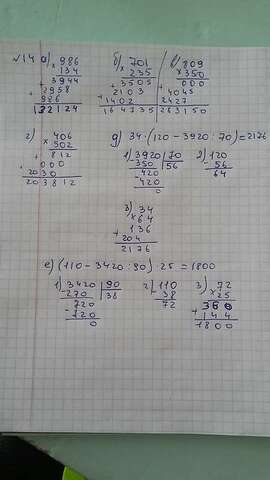 №14 а) 986 б) 701 в) 809
× 134 × 235 × 350
3944 + 3505 000
+ 2958 + 2103 + 4045
986 1402 2427
132124 164735 283150
г) × 406 д) 34·(120-3920:70)=2176
502 1) 3920 | 70 2) 120
+ 812 350 | 56 56
000 420 64
2030 420
203812 0
3) 34
× 64
136
+ 204
2176
е) (110-3420:90)·25=1800
1) 3420 | 90 2) 110 3) 72
-270 | 38 - 38 × 25
720 72 360
-720 + 144
0 1800